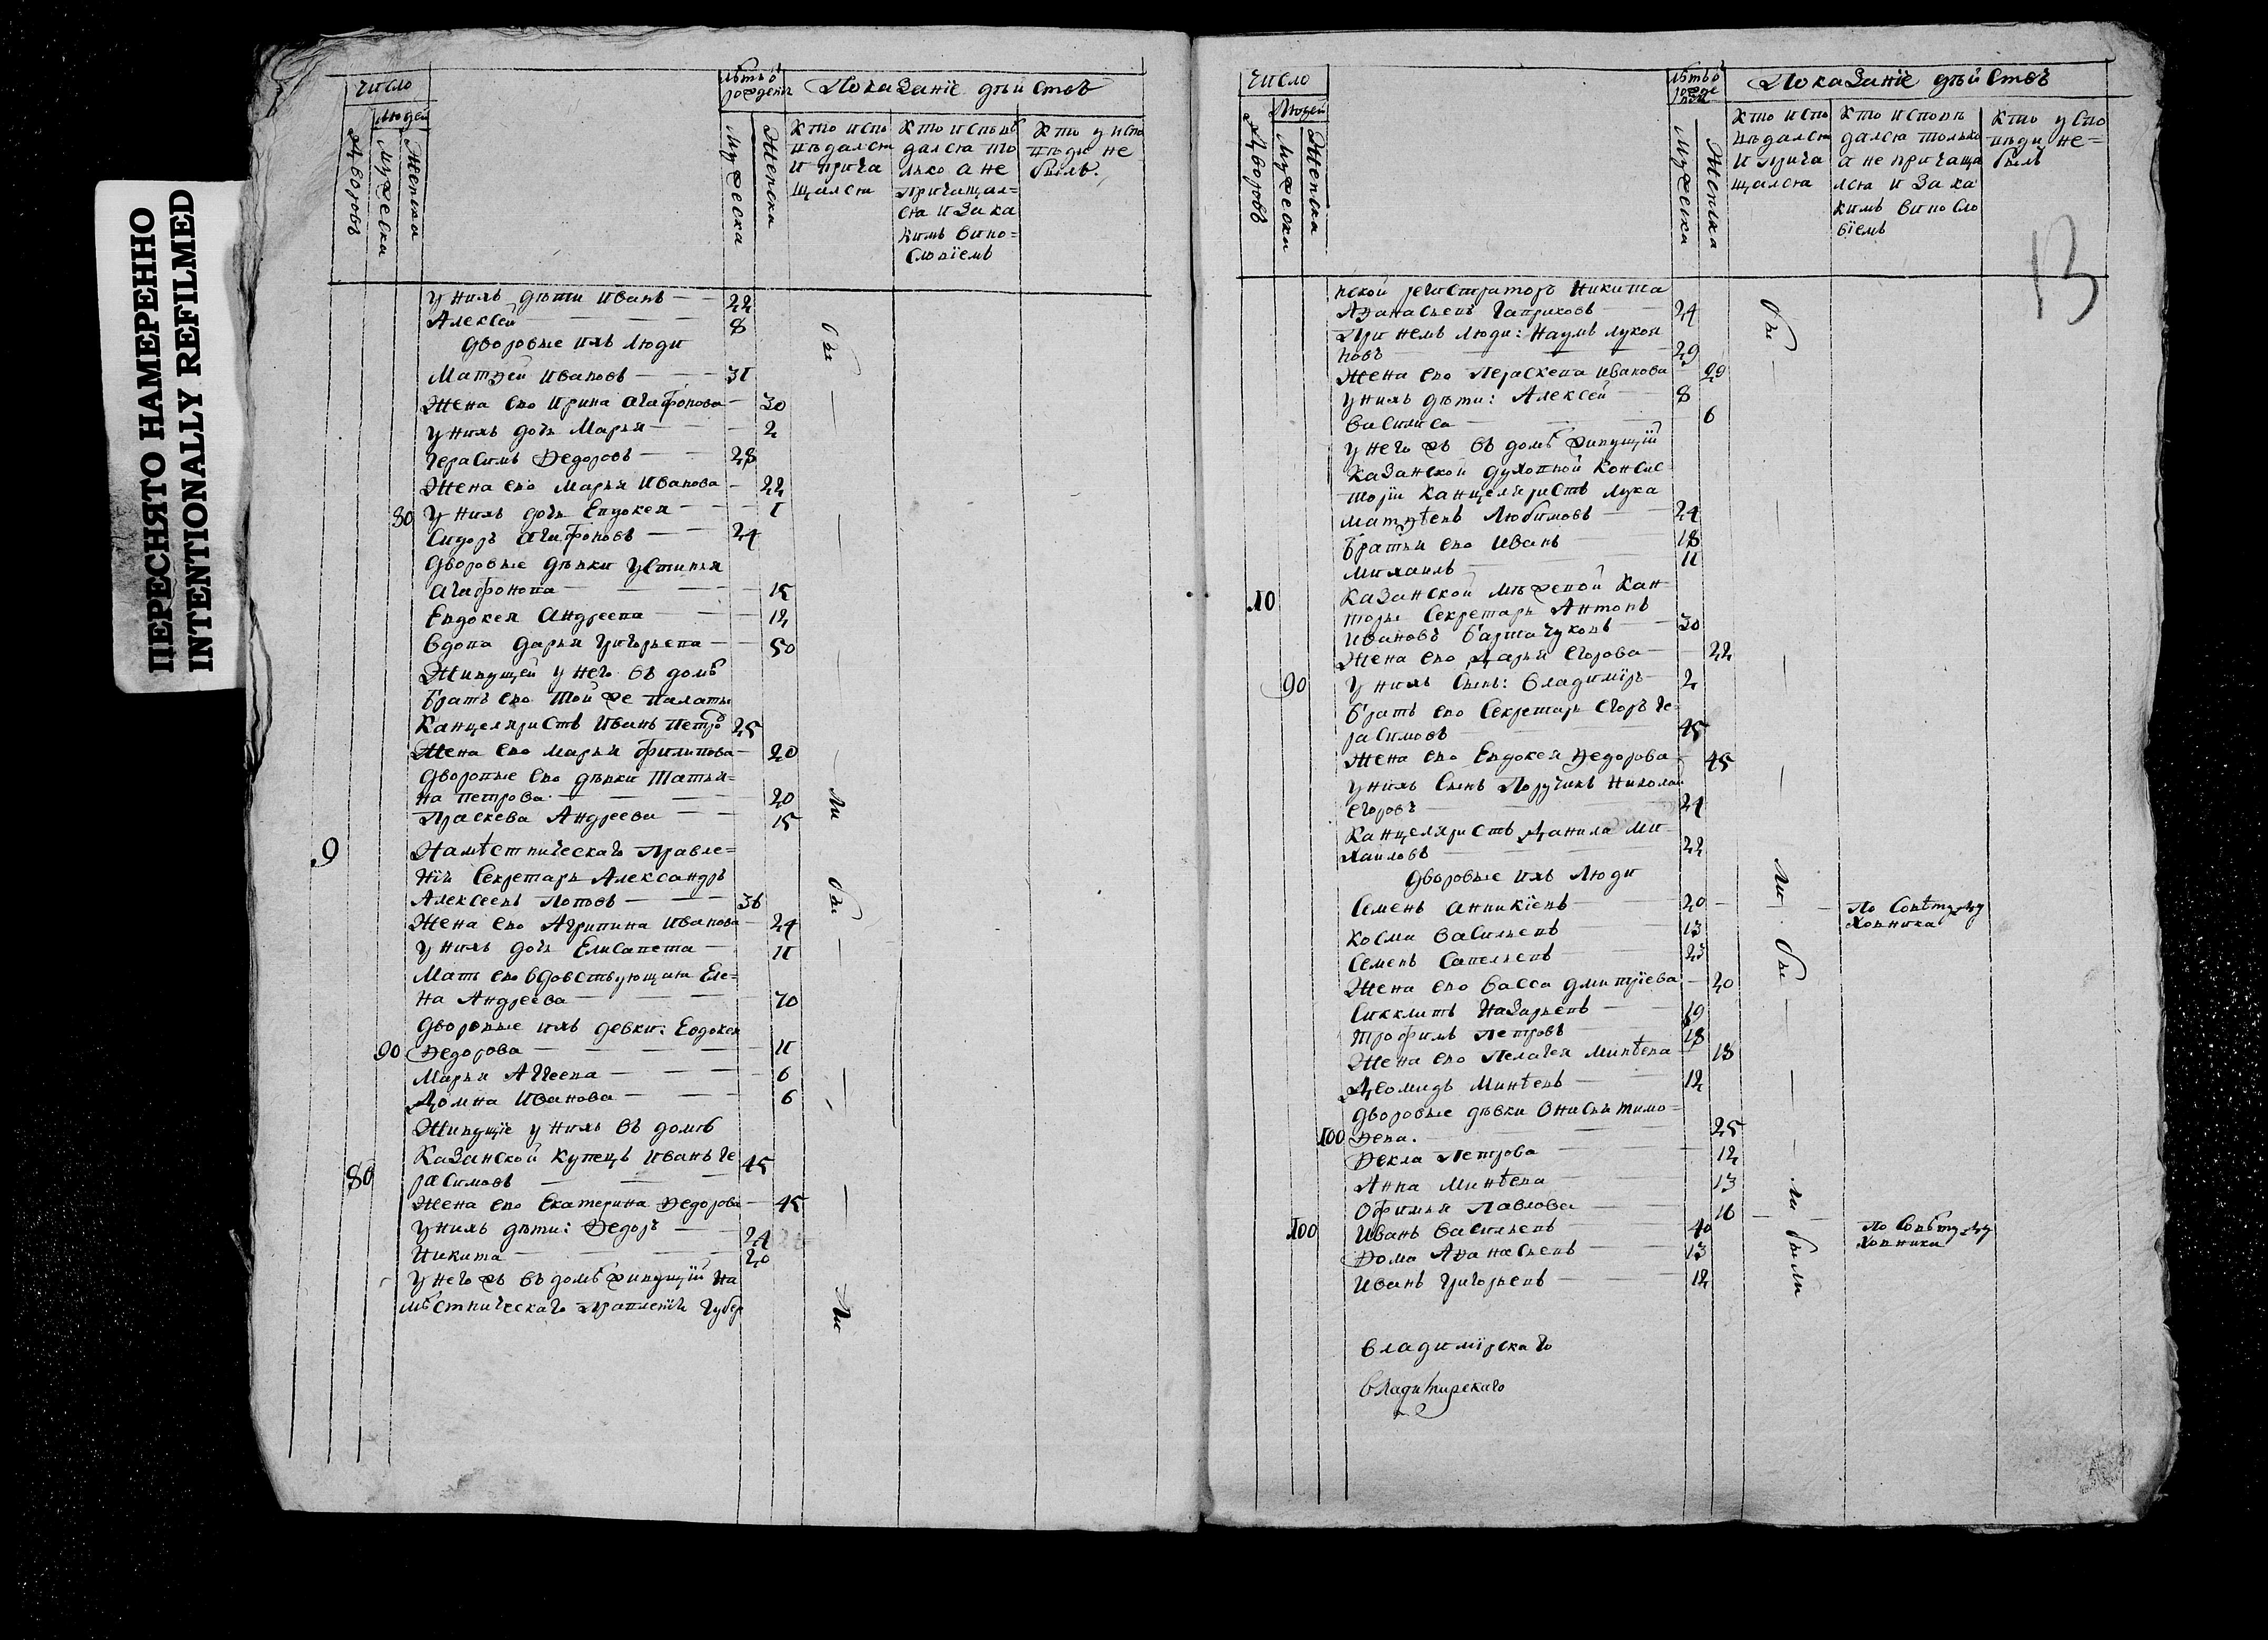 ПЕРЕСНЯТО НАМЕРЕННО
INTENTIONALLY REFILMED
число
Дворовъ
людей
мужеска
Женска
лѣтъ о рождени
мужеска
Женска
Показаніе дѣйствъ
Кто испо
вѣдался
и прича
щался
Кто исповѣ
дался то
лько а не
причащал=
ся и за ка
кимъ вино=
словіемъ
Кто у испо
вѣди не
былъ.
у нихъ дѣти Иванъ 22
Алексей 8
Дворовые ихъ люди
Матѳей Ивановъ 31
Жена ево Ирина Агафонова 30
у нихъ дочь Марья 2
Герасимъ Ѳедоровъ 28
Жена ево Марья Иванова 22
80 у нихъ дочь Евдокея 1
Сидоръ Агафоновъ 24
Дворовые дѣвки Устинья
Агафонова 15
Евдокея Андреева 12
вдова Дарья Григорьева 50
Живущей у него въ домѣ
братъ ево той же Палаты
Канцеляристъ Иванъ Петро 25
Жена ево Марья Филипова 20
Дворовые ево дѣвки Татья=
на Петрова 20
Праскева Андреева 15
9 Намѣстническаго Правле=
нія Секретарь Александръ
Алексеевъ Поповъ 36
Жена ево Агрипина Иванова 24
у нихъ дочь Елисавета 11
Мать ево вдовствующая Еле=
на Андреева 70
Дворовые ихъ девки: Евдокея
90 Ѳедорова 11
Марья Аггеева 6
Домна Иванова 6
Живущіе у нихъ въ домѣ
Казанской купецъ Иванъ Ге
80 расимовъ 45
Жена ево Екатерина Ѳедорова 45
у нихъ дѣти: Ѳедоръ 24
Никита 20
У него жъ въ домѣ живущій На
мѣстническаго Правленія Губер
бы
ли
бы
ли
число
Дворовъ
Людей
мужеска
Женска
лѣтъ о рожде нія
мужеска
Женска
Показаніе дѣйствъ
Кто испо
вѣдался
и прича
щался
Кто исповѣ
дался только
а не причаща
лся и за ка
кимъ винословіемъ
Кто у испо
вѣди не=
былъ
13
нской регистраторъ Никита
Аѳанасьевъ Гавриловъ 24
При немъ люди: Наумъ Лукоя
новъ 29
Жена ево Пераскева Иванова 29
у нихъ дѣти: Алексей 8
Василиса 6
у него жъ въ домѣ живущій
Казанской духовной Консис
торіи Канцеляристъ Лука
Матѳѣевъ Любимовъ 24
братья ево Иванъ 18
Михаилъ 11
10 Казанской межевой Кан=
торы Секретарь Антонъ
Ивановъ 30
Жена ево Дарья Егорова 22
90 у нихъ сынъ: Владимиръ 2
братъ ево Секретарь Егоръ Ге=
расимовъ 45
Жена ево Евдокея Ѳедорова 45
у нихъ сынъ Поручикъ Николай
Егоровъ 24
Канцеляристъ Данила Ми=
хаиловъ 22
Дворовые ихъ люди
Семенъ Аникіевъ 20 По совѣту ду
ховника
Косма Васильевъ 13
Семенъ Савельевъ 23
Жена ево Васса Дмитріева 20
Сикклитъ Назарьевъ 19
Трофимъ Петровъ 18
Жена ево Пелагея Минѣева 18
Деомидъ Минѣевъ 12
Дворовые дѣвки Онисья Тимо=
100 ѳева. 25
Ѳекла Петрова 12
Анна Минѣева 13
Офимья Павлова 16
100 Иванъ Васильевъ 40 По совѣту ду
ховника
Ѳома Аѳанасьевъ 13
Иванъ Григорьевъ 12
бы
ли
бы
ли
были
Владимірскаго
Владимирскаго